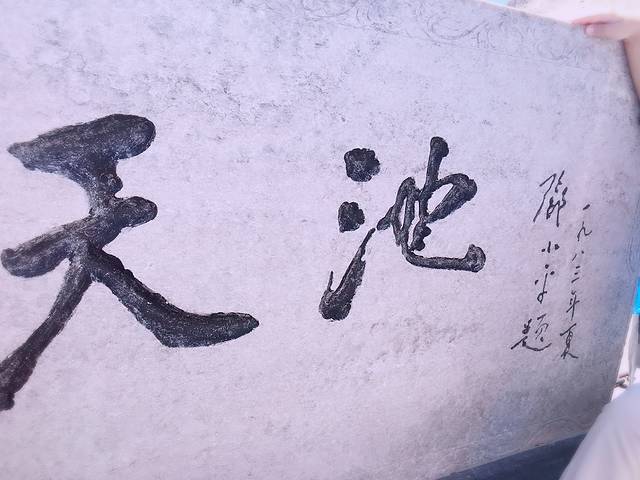 天池
一九八三年夏
鄧小平题